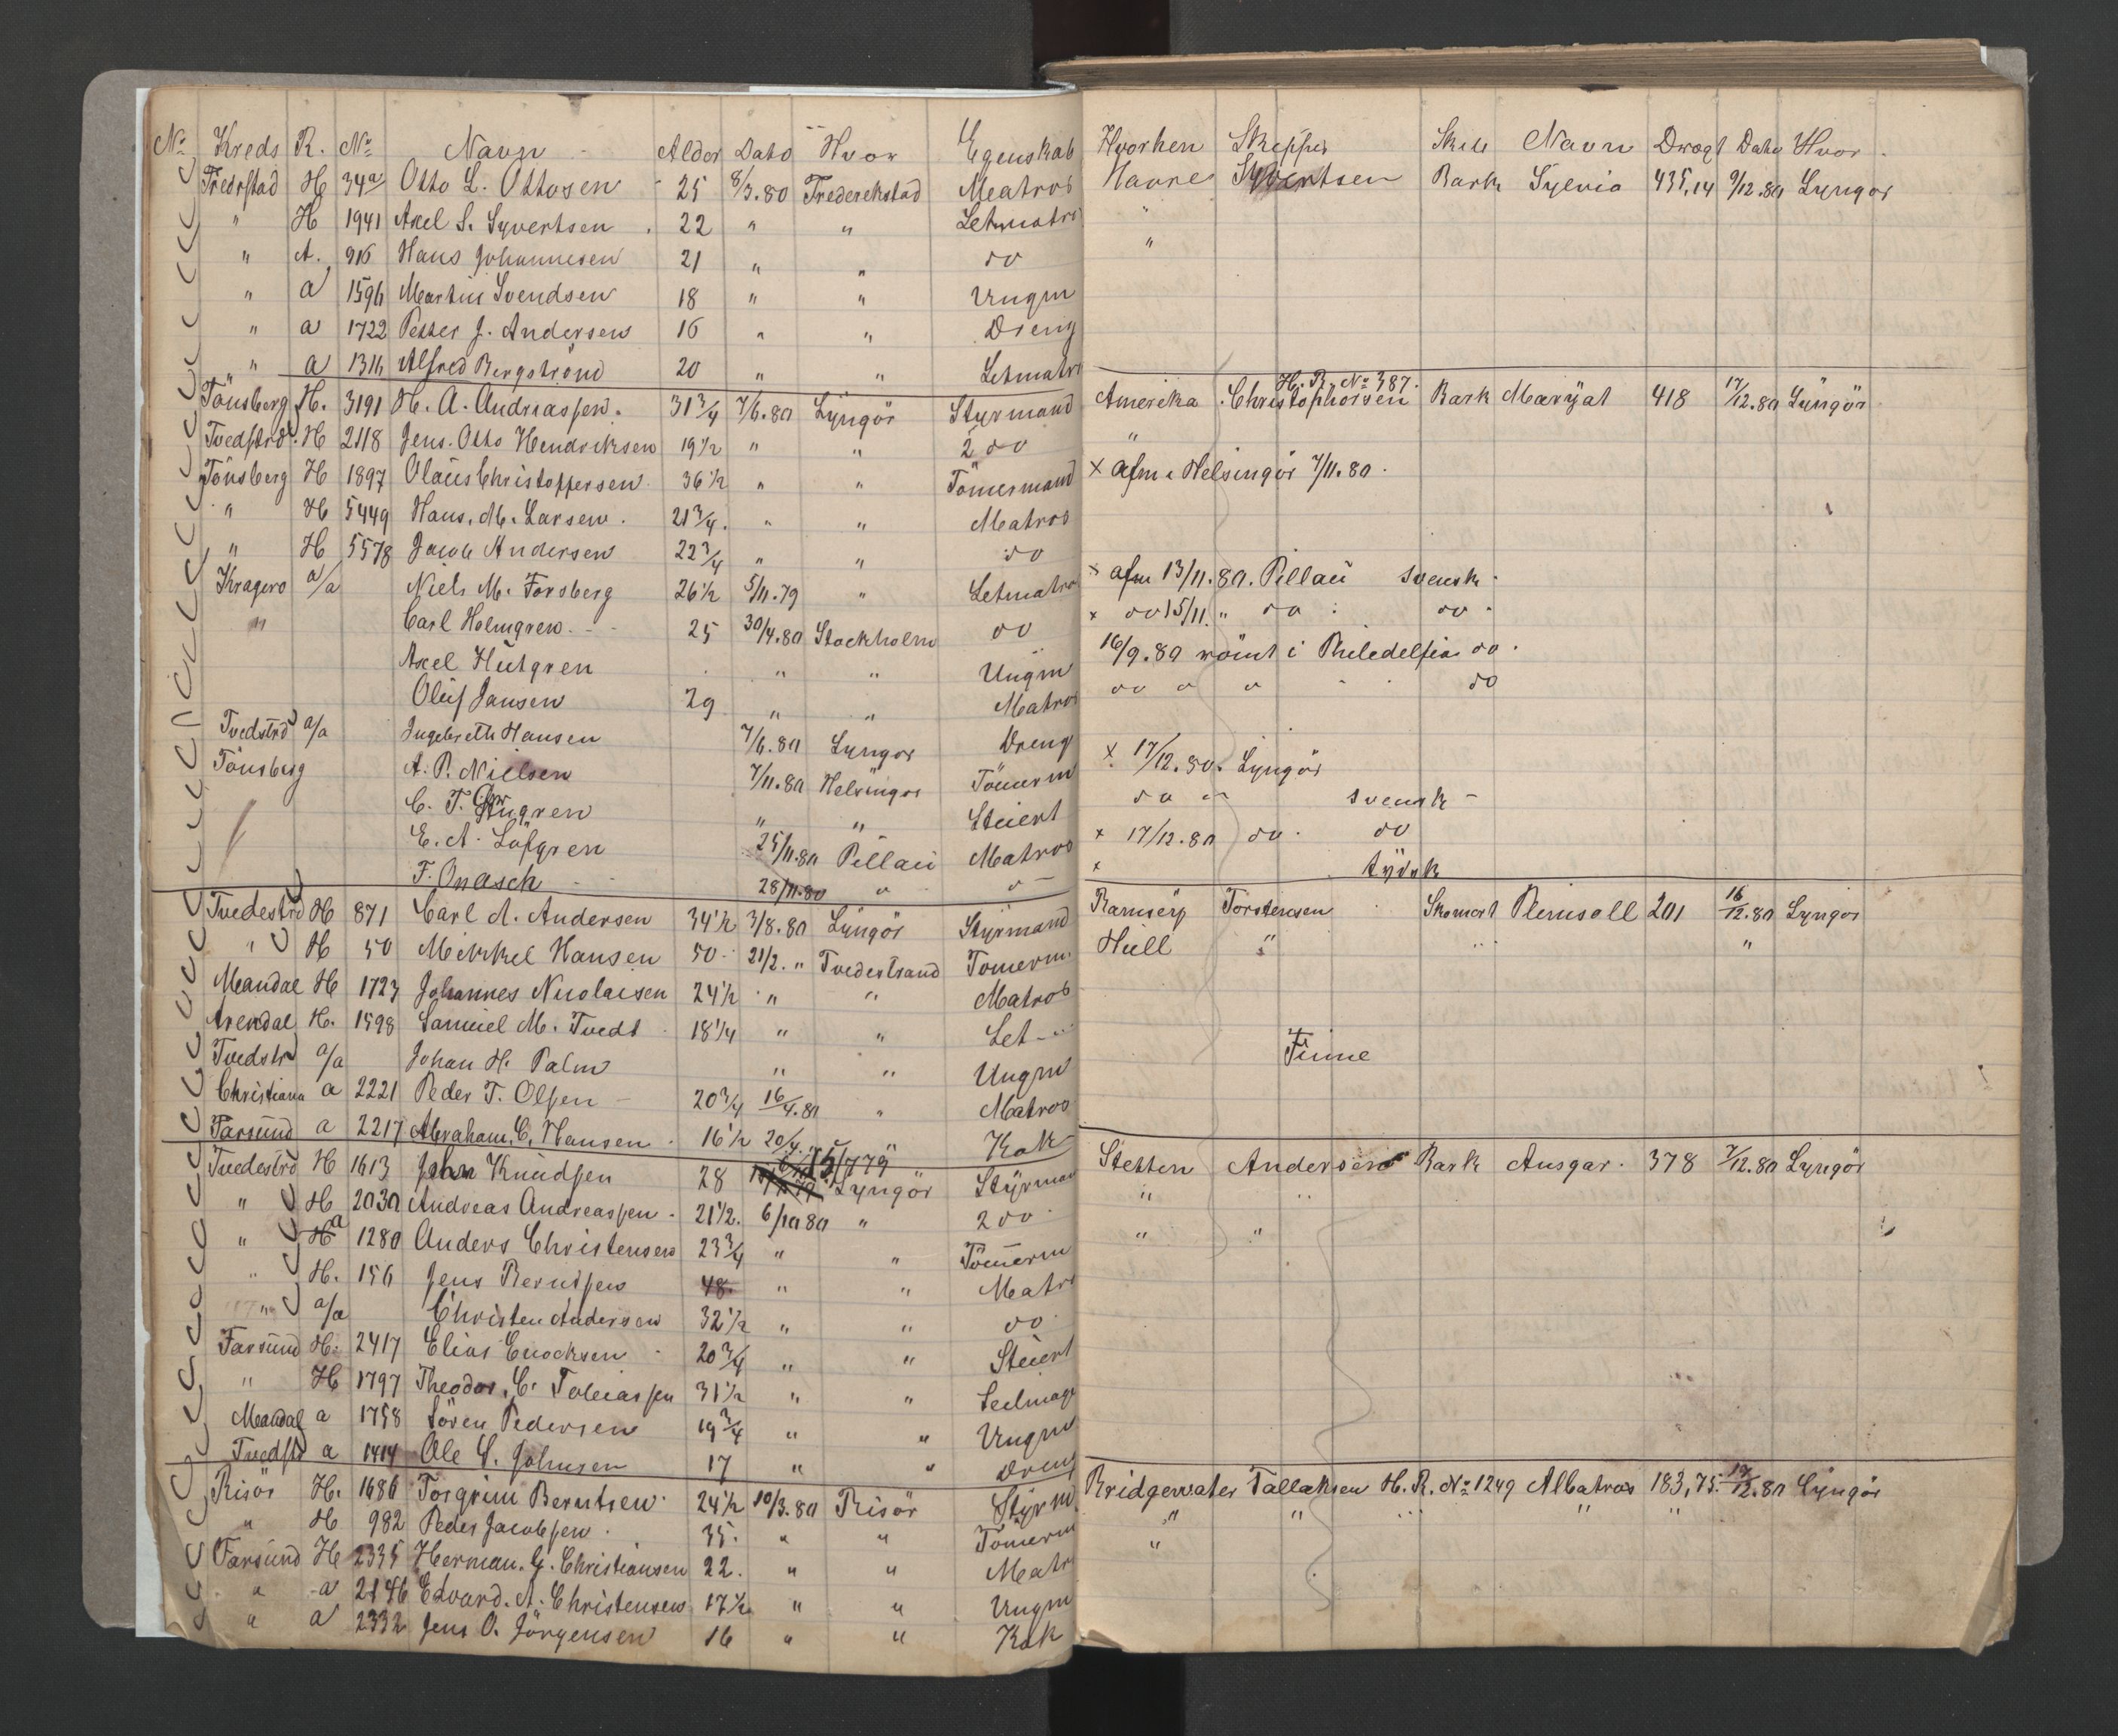 No Kreds R. No Navn Alder Dato Hvor Egenskab
Fredrstad H 34a Otto L. Ottosen 25 8/3.80 Frederekstad Matros
" H 1941 Axel S. Syvertsen 22 " " Letmatrs
" A. 916 Hans Johannesen 21 " " do
" a 1596 Martin Svendsen 18 " " Ungm
" a 1722 Petter J. Andersen 16 " " Dreng
" a 1316 Alfred Bergströnd 20 " " Letmatrs
Tönsberg H. 3191 H. A. Andreassen. 31 3/4 7/6.80 Lyngör Styrmand
Tvedstrd. H 2118 Jens Otto Hendriksen 19 1/2 " " 2 do
Tönsberg H 1897 Olaus Christoppersen 36 1/2 " " Tömermand
" H 5449 Hans. M. Larsen. 21 3/4. " " Matros
" H 5578 Jacob Andersen 22 3/4 " " do
Kragero a/a Niels M. Forsberg 26 1/2 5/11.79 " Letmatro
" Carl Holmgren 25 30/4.80 Stockholm do
Axel Hultgren " " Ungm
Oluf Jansen 29 " " Matros
Tvedstrd a/a Ingebreth Hansen 7/6.80 Lyngor Dreng
Tönsberg A. P. Nielsen 7/11.80 Helsingor Tömerm
C. T. " " Stuert
E. A. Löfgren 25/11.80 Pillau Matros
F. Onasch 28/11.80 " "
Tvedestrd H 871 Carl A. Andersen 34 1/2 3/8.80 Lyngör Styrmand
" H 50 Mikkel Hansen 50 21/2. " Tvedestrand Tomerm.
Mandal H 1723 Johannes Nicolaisen 24 1/2 " " Matros
Arendal H. 1598 Samuel M. Tvedt 18 1/4 " " Let - "
Tvedstrd a/a Johan H. Palm " " Ungm
Christiana a 2221 Peder T. Olsen 20 3/4 16/4.80 " Matros
Farsund a 2217 Abraham. C. Hansen 16 1/2 20/4 " Kok
Tvedestrd H 1613 John Knudsen 28 Lyngör Styrman
" H 2030 Andreas Andreassen. 21 1/2. 6/10 80 " 2 do
" Ha 1280 Anders Christensen 23 3/4 " " Tömerm
" H. 156 Jens Berntsen 48 " " Matrs
" a/a Christen Andersen 32 1/2 " " do
Farsund H. 2417 Elias Enocksen 20 3/4 " " Stuert
" H 1797 Theodor. C. Tobiassen 31 1/2 " " Seilmage
Mandal a 1758 Sören Pedersen 19 3/4 " " Ungm
Tvedstd a 1414 Ole C. Johnsen 17 " " Dreng
Risör H. 1686 Torgrim Berntsen 24 1/2 10/3.80 Risör Styrm
" H 982 Peder Jacobsen. 35. " " Tömerm
Farsund H 2335 Herman. G. Christiansen 22. " " Matr
" a 2146 Edvard. A. Christensen 17 1/2 " " Ungm
" a 2332 Jens O. Jörgensen 16 " " Kok
Hvorhen Skipper Skib Navn Drægt Dato Hvor.
Havre Syvertsen Bark Sylvia 435,14 9/12.80 Lyngor
"
"
H. R. No 387.
Amerika Christophersen Bark Maryat 418 17/12.80 Lyngör
"
x afm i Helsingör 7/11.80.
x afm 13/11.80. Pillau svensk
x do 15/11. " do do
16/9.80 römt i Philedelfia do.
do " " do
x 17/12.80. Lyngör
do " svensk
x 17/12.80 do. do
x tydsk
Ramsey Torstensen Skonert Plimsoll 201 16/12.80 Lyngor
Hull " " "
Finne
Stetten Andersen Bark Ansgar. 378 7/12.80 Lyngör
" "
" "
Bridgewater Tallaksen H. R. No 1249 Albatros 183,75. 17/12.80 Lyngör
" " " " "
"